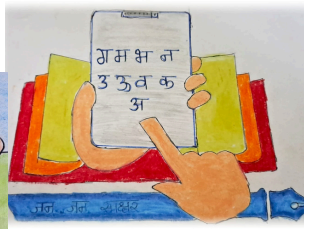 ग म भ न
उ ऊ व क
अ
जन.. जन.. साक्षर